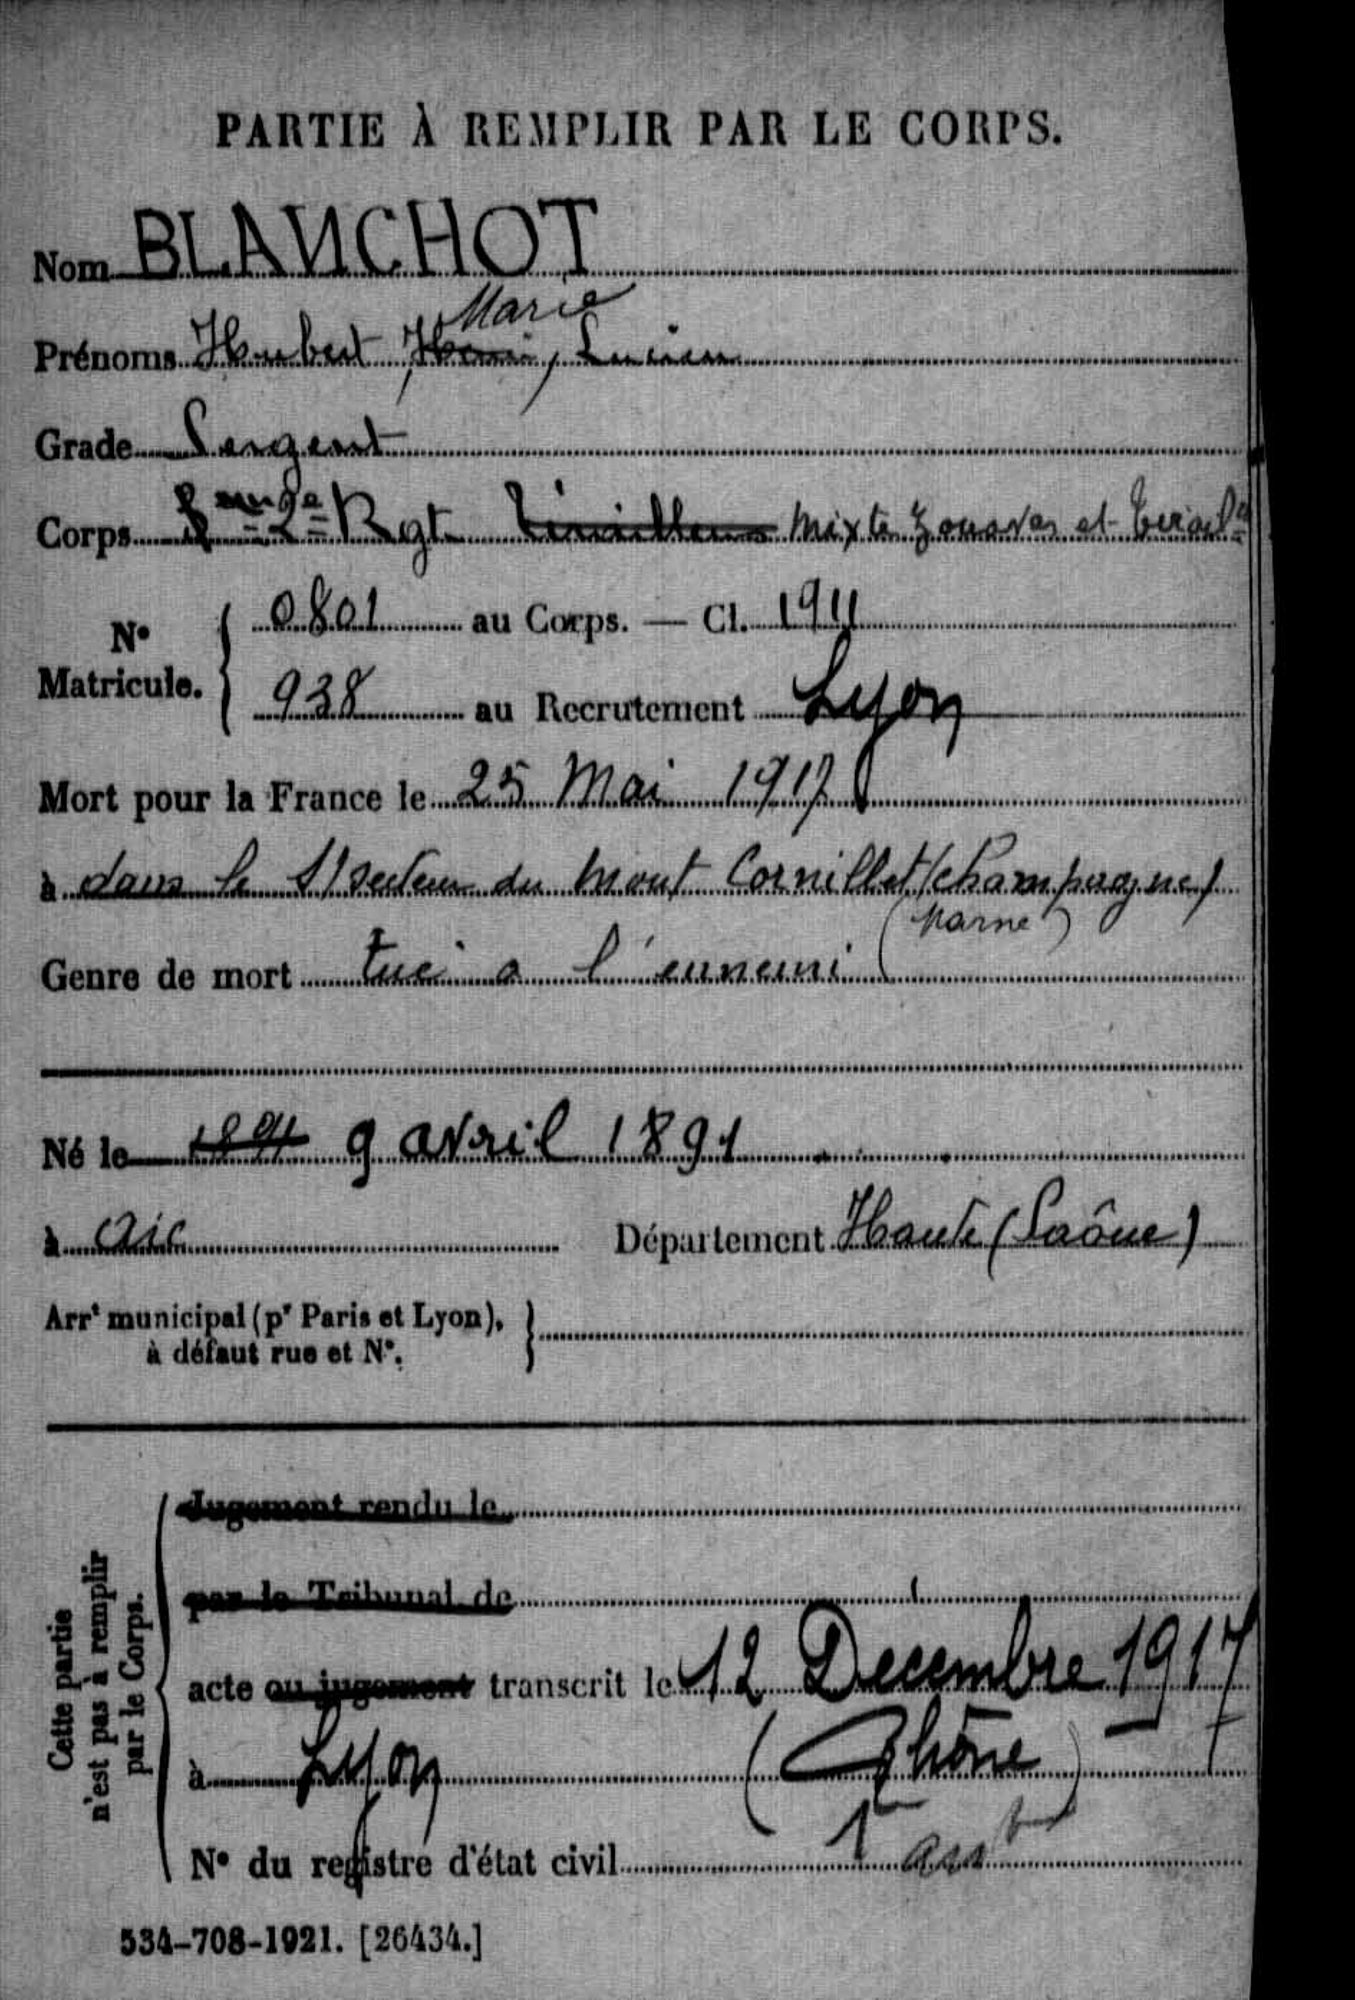 PARTIE À REMPLIR PAR LE CORPS.
Nom BLANCHOT
Marie
Prénoms Hubert, Henri, Lucien
Grade Sergent
Corps 2e Rgt Tirailleurs Mixte Zouaves et Tiraile
N° Matricule. { 0801 au Corps. — Cl. 1911
938 au Recrutement Lyon
Mort pour la France le 25 Mai 1917
à dans le S/secteur du Mont Cornillet (Champagne)
(Marne)
Genre de mort tué a l'ennemi
Né le 1891 9 avril 1891
à Département Haute (Saône)
Arrt municipal (pr Paris et Lyon),
à défaut rue et N°.
Cette partie n'est pas à remplir par le Corps.
Jugement rendu le
par le Tribunal de
acte ou jugement transcrit le 12 Decembre 1917
à Lyon (Rhône)
N° du registre d'état civil 1r arrt
534-708-1921. [26434.]